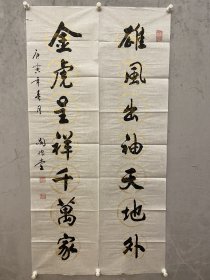 雄風出袖天地外
金虎呈祥千萬家
庚寅年春月